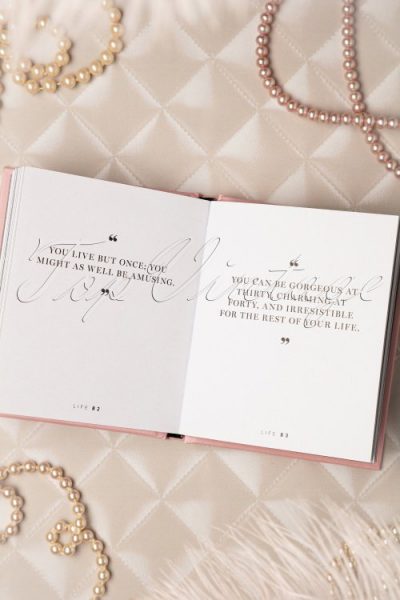 ❝
YOU LIVE BUT ONCE; YOU
MIGHT AS WELL BE AMUSING.
❞
LIFE 82
❝
YOU CAN BE GORGEOUS AT
THIRTY, CHARMING AT
FORTY, AND IRRESISTIBLE
FOR THE REST OF YOUR LIFE.
❞
LIFE 83
Top Vintage